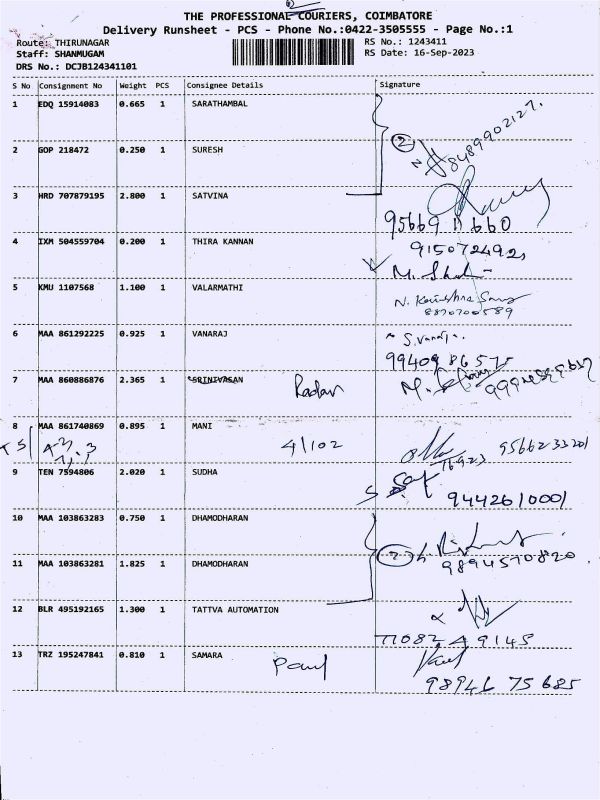 THE PROFESSIONAL COURIERS, COIMBATORE
Delivery Runsheet - PCS - Phone No.:0422-3505555 - Page No.:1
Route: THIRUNAGAR
RS No.: 1243411
Staff: SHANMUGAM
RS Date: 16-Sep-2023
DRS No.: DCJB124341101
S No Consignment No Weight PCS Consignee Details Signature
1 EDQ 15914083 0.665 1 SARATHAMBAL
2 8489902127.
2 GOP 218472 0.250 1 SURESH
3 HRD 707879195 2.800 1 SATVINA
95669 11660
4 IXM 504559704 0.200 1 THIRA KANNAN
915072492
5 KMU 1107568 1.100 1 VALARMATHI
8870700589
6 MAA 861292225 0.925 1 VANARAJ
S. Vanaj
99409 86575
7 MAA 860886876 2.365 1 SRINIVASAN
8 MAA 861740869 0.895 1 MANI 4/102
9566233201
16923
9 TEN 7594806 2.020 1 SUDHA
9442610001
10 MAA 103863283 0.750 1 DHAMODHARAN
2
11 MAA 103863281 1.825 1 DHAMODHARAN 9894570820
12 BLR 495192165 1.300 1 TATTVA AUTOMATION
77082 49145
13 TRZ 195247841 0.810 1 SAMARA Paul
98946 75685